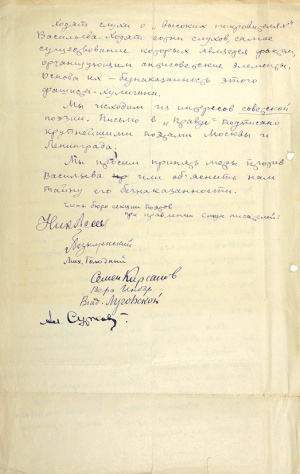 Ходят слухи о „высоких покровителях"
Васильева. Ходят сотни слухов, самое
существование которых является фактом,
организующим антисоветские элементы.
Основа их – безнаказанность этого
фашиста-хулигана.
Мы исходим из интересов советской
поэзии. Письмо в „Правде" подписано
крупнейшими поэтами Москвы и
Ленинграда.
Мы просим принять меры против
Васильева или объяснить нам
тайну его безнаказанности.
Члены бюро секции поэтов
при правлении союза писателей:
Ник Асеев
Безыменский
Мих. Голодный
Семен Кирсанов
Вера Инбер
Влад. Луговской
Ал. Сурков